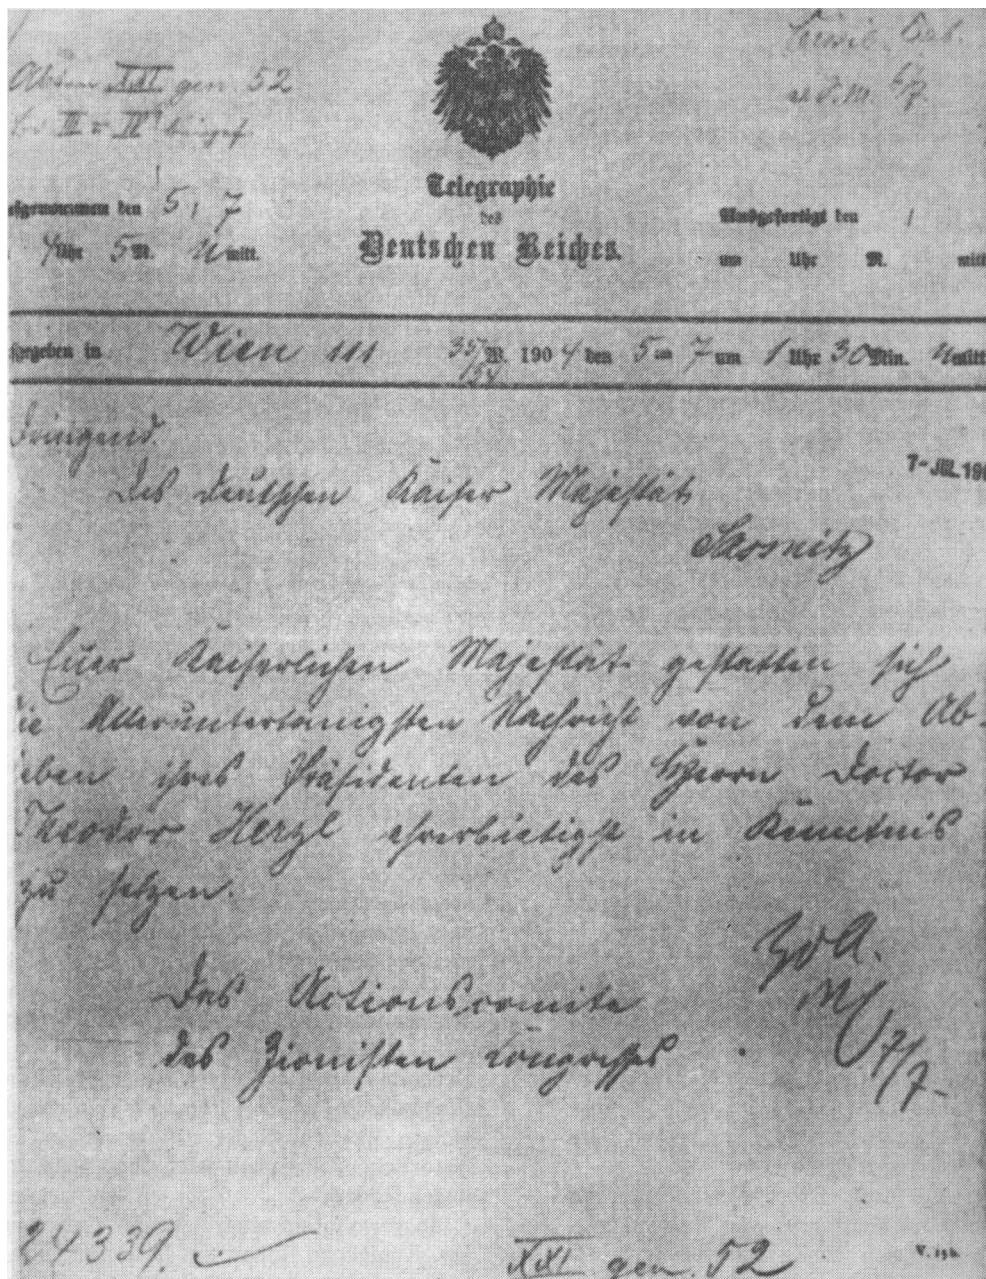 gen. 52
III
Telegraphie
des
Deutschen Reiches.
den 5/7
4 Uhr 5 M. mitt.
Ausgefertigt den /
um Uhr M. mitt
in Wien 111 35/34 W. 1904 den 5 ten 7 um 1 Uhr 30 Min. mitt
Dringend.
Des Deutschen Kaiser Majestät
7-JUL.190
Sassnitz
Euer Kaiserlichen Majestät gestatten sich
die Alleruntertänigsten Nachricht von dem Ab-
leben ihres Präsidenten des Herrn Doctor
Theodor Herzl ehrerbietigst in Kenntnis
zu setzen.
ZdA.
Das Actionscomite
des Zionisten Congresses
7/7-
24339.
XXI gen. 52